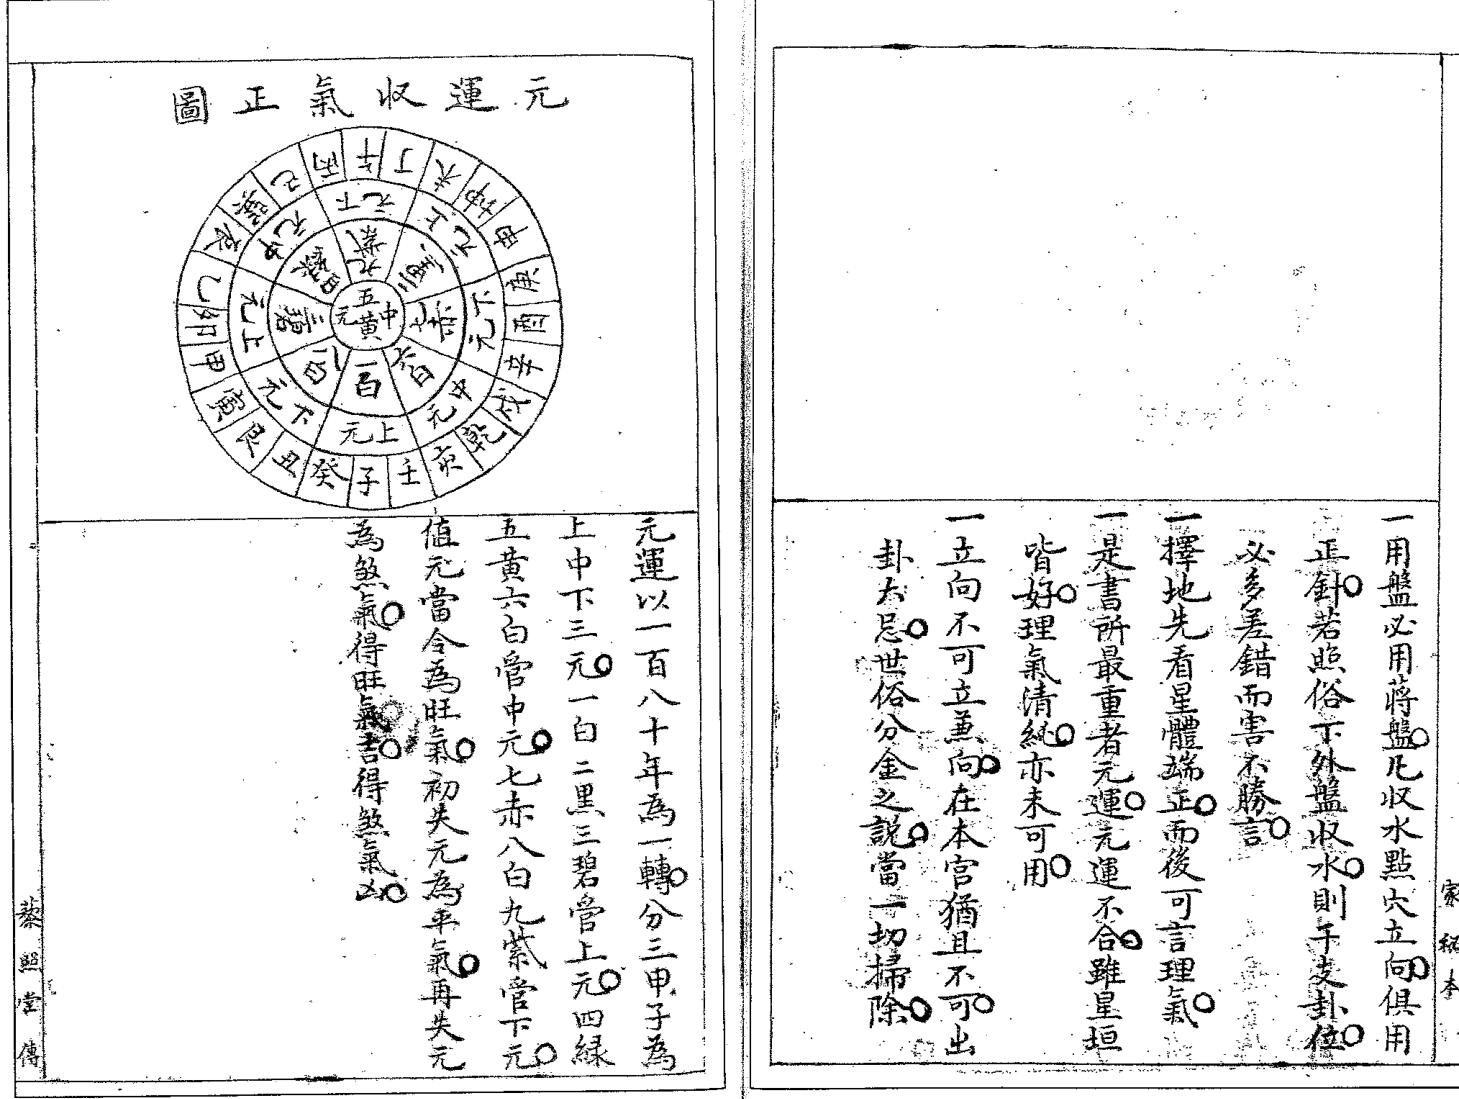 一用盤必用蔣盤凡收水點穴立向俱用
正針若照俗下外盤收水則干支卦位
必多差錯而害不勝言
一擇地先看星體端正而後可言理氣
一是書所最重者元運元運不合雖星垣
皆好理氣清純亦未可用
一立向不可立兼向在本宮猶且不可出
卦大忌世俗分金之說當一切掃除
家秘本
元運收氣正圖
午丁未坤申庚酉辛戌乾亥壬子癸丑艮寅甲卯乙辰巽巳丙
下元
上元
下元
中元
上元
下元
上元
中元
九紫
二黑
七赤
六白
一白
八白
三碧
四綠
五黃
中元
元運以一百八十年為一轉分三甲子為
上中下三元一白二黑三碧管上元四綠
五黃六白管中元七赤八白九紫管下元
值元當令為旺氣初失元為平氣再失元
為煞氣得旺氣吉得煞氣凶
藜照堂傳